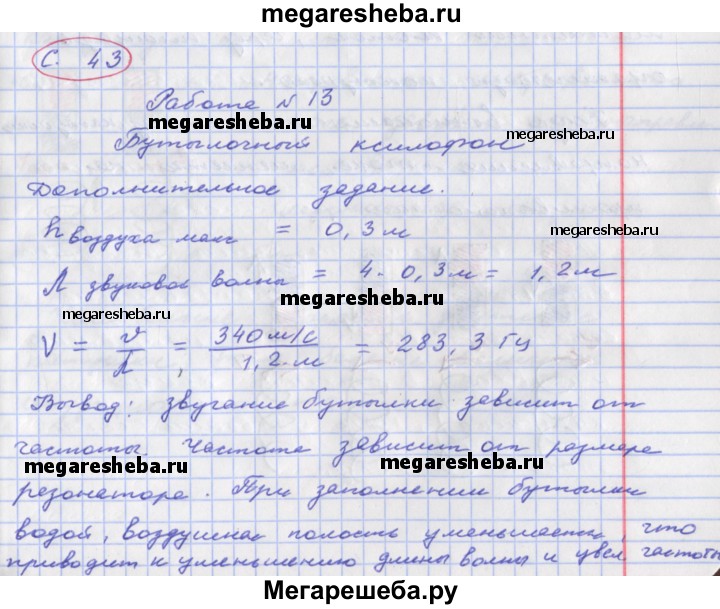 megaresheba.ru
С. 43
Работа № 13
megaresheba.ru
megaresheba.ru
Бутылочный ксилофон
Дополнительное задание.
h воздуха макс = 0,3 м
megaresheba.ru
λ звуковой волны = 4 · 0,3 м = 1,2 м
megaresheba.ru
megaresheba.ru
V = v/λ = 340 м/с / 1,2 м = 283,3 Гц
Вывод: звучание бутылки зависит от
частоты. Частота зависит от размера
megaresheba.ru
megaresheba.ru
резонатора. При заполнении бутылки
водой, воздушная полость уменьшается, что
приводит к уменьшению длины волны и увел. частоты
Мегарешеба.ру